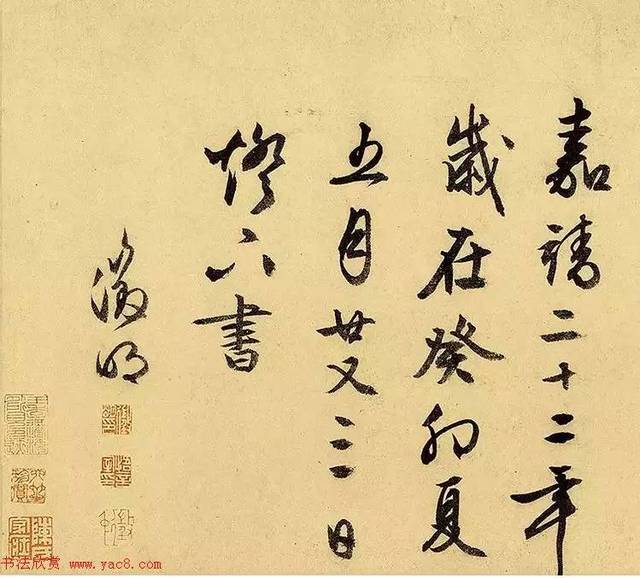 嘉靖二十二年
歲在癸卯夏
五月廿又三日
燈下書
徵明
书法欣赏 www.yac8.com